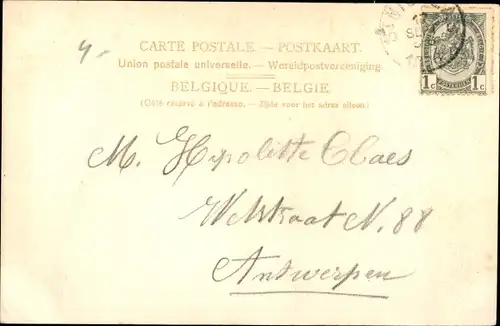 4-
CARTE POSTALE. — POSTKAART.
Union postale universelle. — Wereldpostvereeniging.
BELGIQUE. — BELGIE.
(Côté réservé à l'adresse. — Zijde voor het adres alleen.)
1c 1c
M. Hypolitte Claes
Welstraat N. 88
Antwerpen